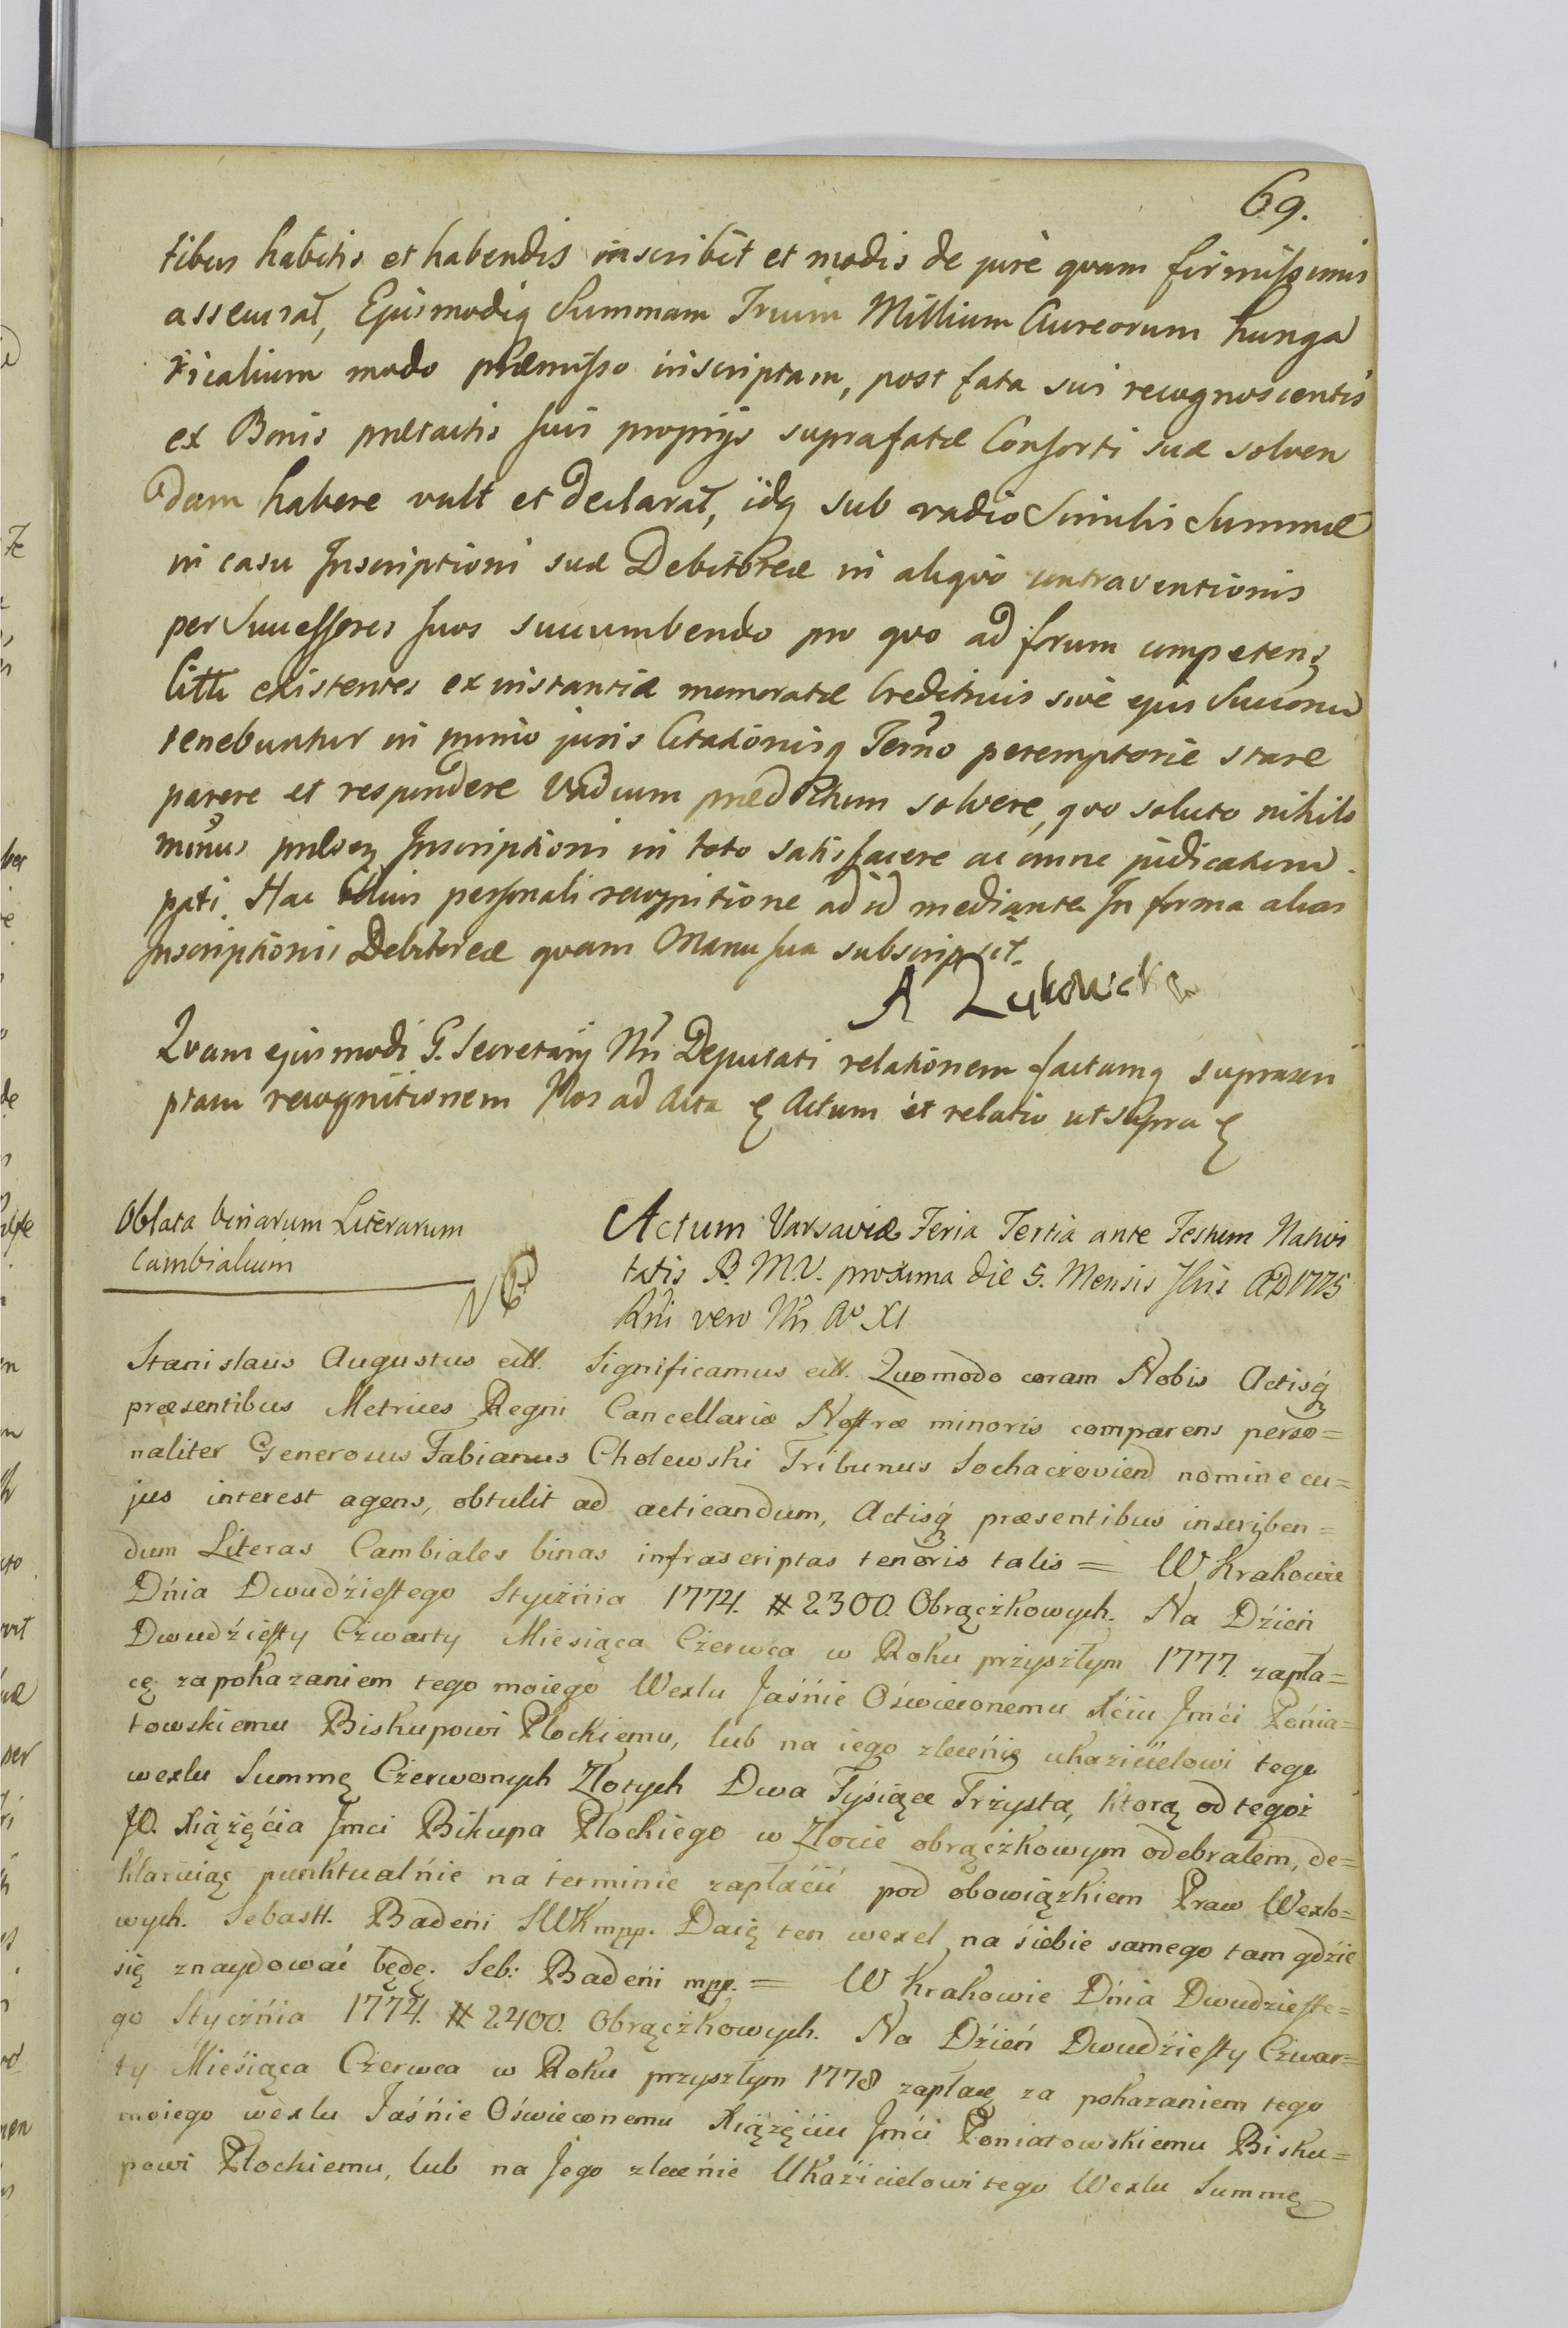 69.
tibus habitis et habendis inscribit et modis de jure quam firmissimis
assecurat, Ejusmodiq Summam Trium Millium Aureorum hunga
ricalium modo præmisso inscriptam, post fata sui recognoscentis
ex Bonis prætactis suis proprijs suprafatæ Consorti suæ solven
dam habere vult et declarat, idq sub vadio Similis Summæ
in casu Inscriptioni suæ Debitoreæ in aliquo contraventionis
per Successores suos succumbendo pro quo ad forum competens
Citti existentes ex instantia memoratæ Creditricis sive ejus Succorum
tenebuntur in primo juris Citationisq Termo peremptorie stare
parere et respondere Vadium prædictum solvere, quo soluto nihilo
minus Inscriptioni in toto satisfacere ac omne judicatum
pati. Hac personali recognitione ad id mediante In forma alias
Inscriptionis Debitoreæ quam Manu sua subscripsit.
A
Quam ejusmodi G. Secretarij Nri Deputati relationem factamq suprascri
ptam recognitionem Nos ad Acta Actum et relatio ut supra
Oblata binarum Literarum
Cambialium
Actum Varsaviæ Feria Tertia ante Festum Nativi
tatis B. M. V. proxima die 5. Mensis 7bris AD 1775
Rni vero Nri Ao XI
Stanislaus Augustus ett. Significamus ett. Quomodo coram Nobis Actisq
præsentibus Metrices Regni Cancellariæ Nostræ minoris comparens perso=
naliter Generosus Fabianus Cholewski Tribunus Sochaczoviens nomine cu=
jus interest agens, obtulit ad acticandum, Actisq præsentibus inscriben=
dum Literas Cambiales binas infrascriptas tenoris talis = W Krakowie
Dńia Dwudźiestego Styczńia 1774. # 2300. Obrączkowych. Na Dźień
Dwudźiesty Czwarty Miesiąca Czerwca w Roku przyszłym 1777. zapła=
cę za pokazaniem tego moiego Wexlu Jaśńie Oświeconemu Xćiu Jmći Pońia=
towskiemu Biskupowi Płockiemu, lub na iego zleceńie ukazićielowi tego
wexlu Summę Czerwonych Złotych Dwa Tyśiące Trzysta, ktorą od tegoż
JO. Xiążęćia Jmci Bikupa Płockiego w Złocie obrączkowym odebrałem, de=
klaruiąc punktualńie na terminie zapłacić pod obowiązkiem Praw Wexlo=
wych. Sebastt. Badeni SWK mpp. Daię ten wexel na śiebie samego tam gdźie
się znaydować będę. Seb: Badeńi mpp. = W Krakowie Dńia Dwudzieste=
go Styczńia 1774. # 2400. Obrączkowych. Na Dźień Dwudźiesty Czwar=
ty Mieśiąca Czerwca w Roku przyszłym 1778 zapłacę za pokazaniem tego
moiego wexlu Jaśńie Oświeconemu Xiążęćiu Jmći Poniatowskiemu Bisku=
powi Płockiemu, lub na Jego zleceńie Ukaźicielowi tego Wexlu Summę